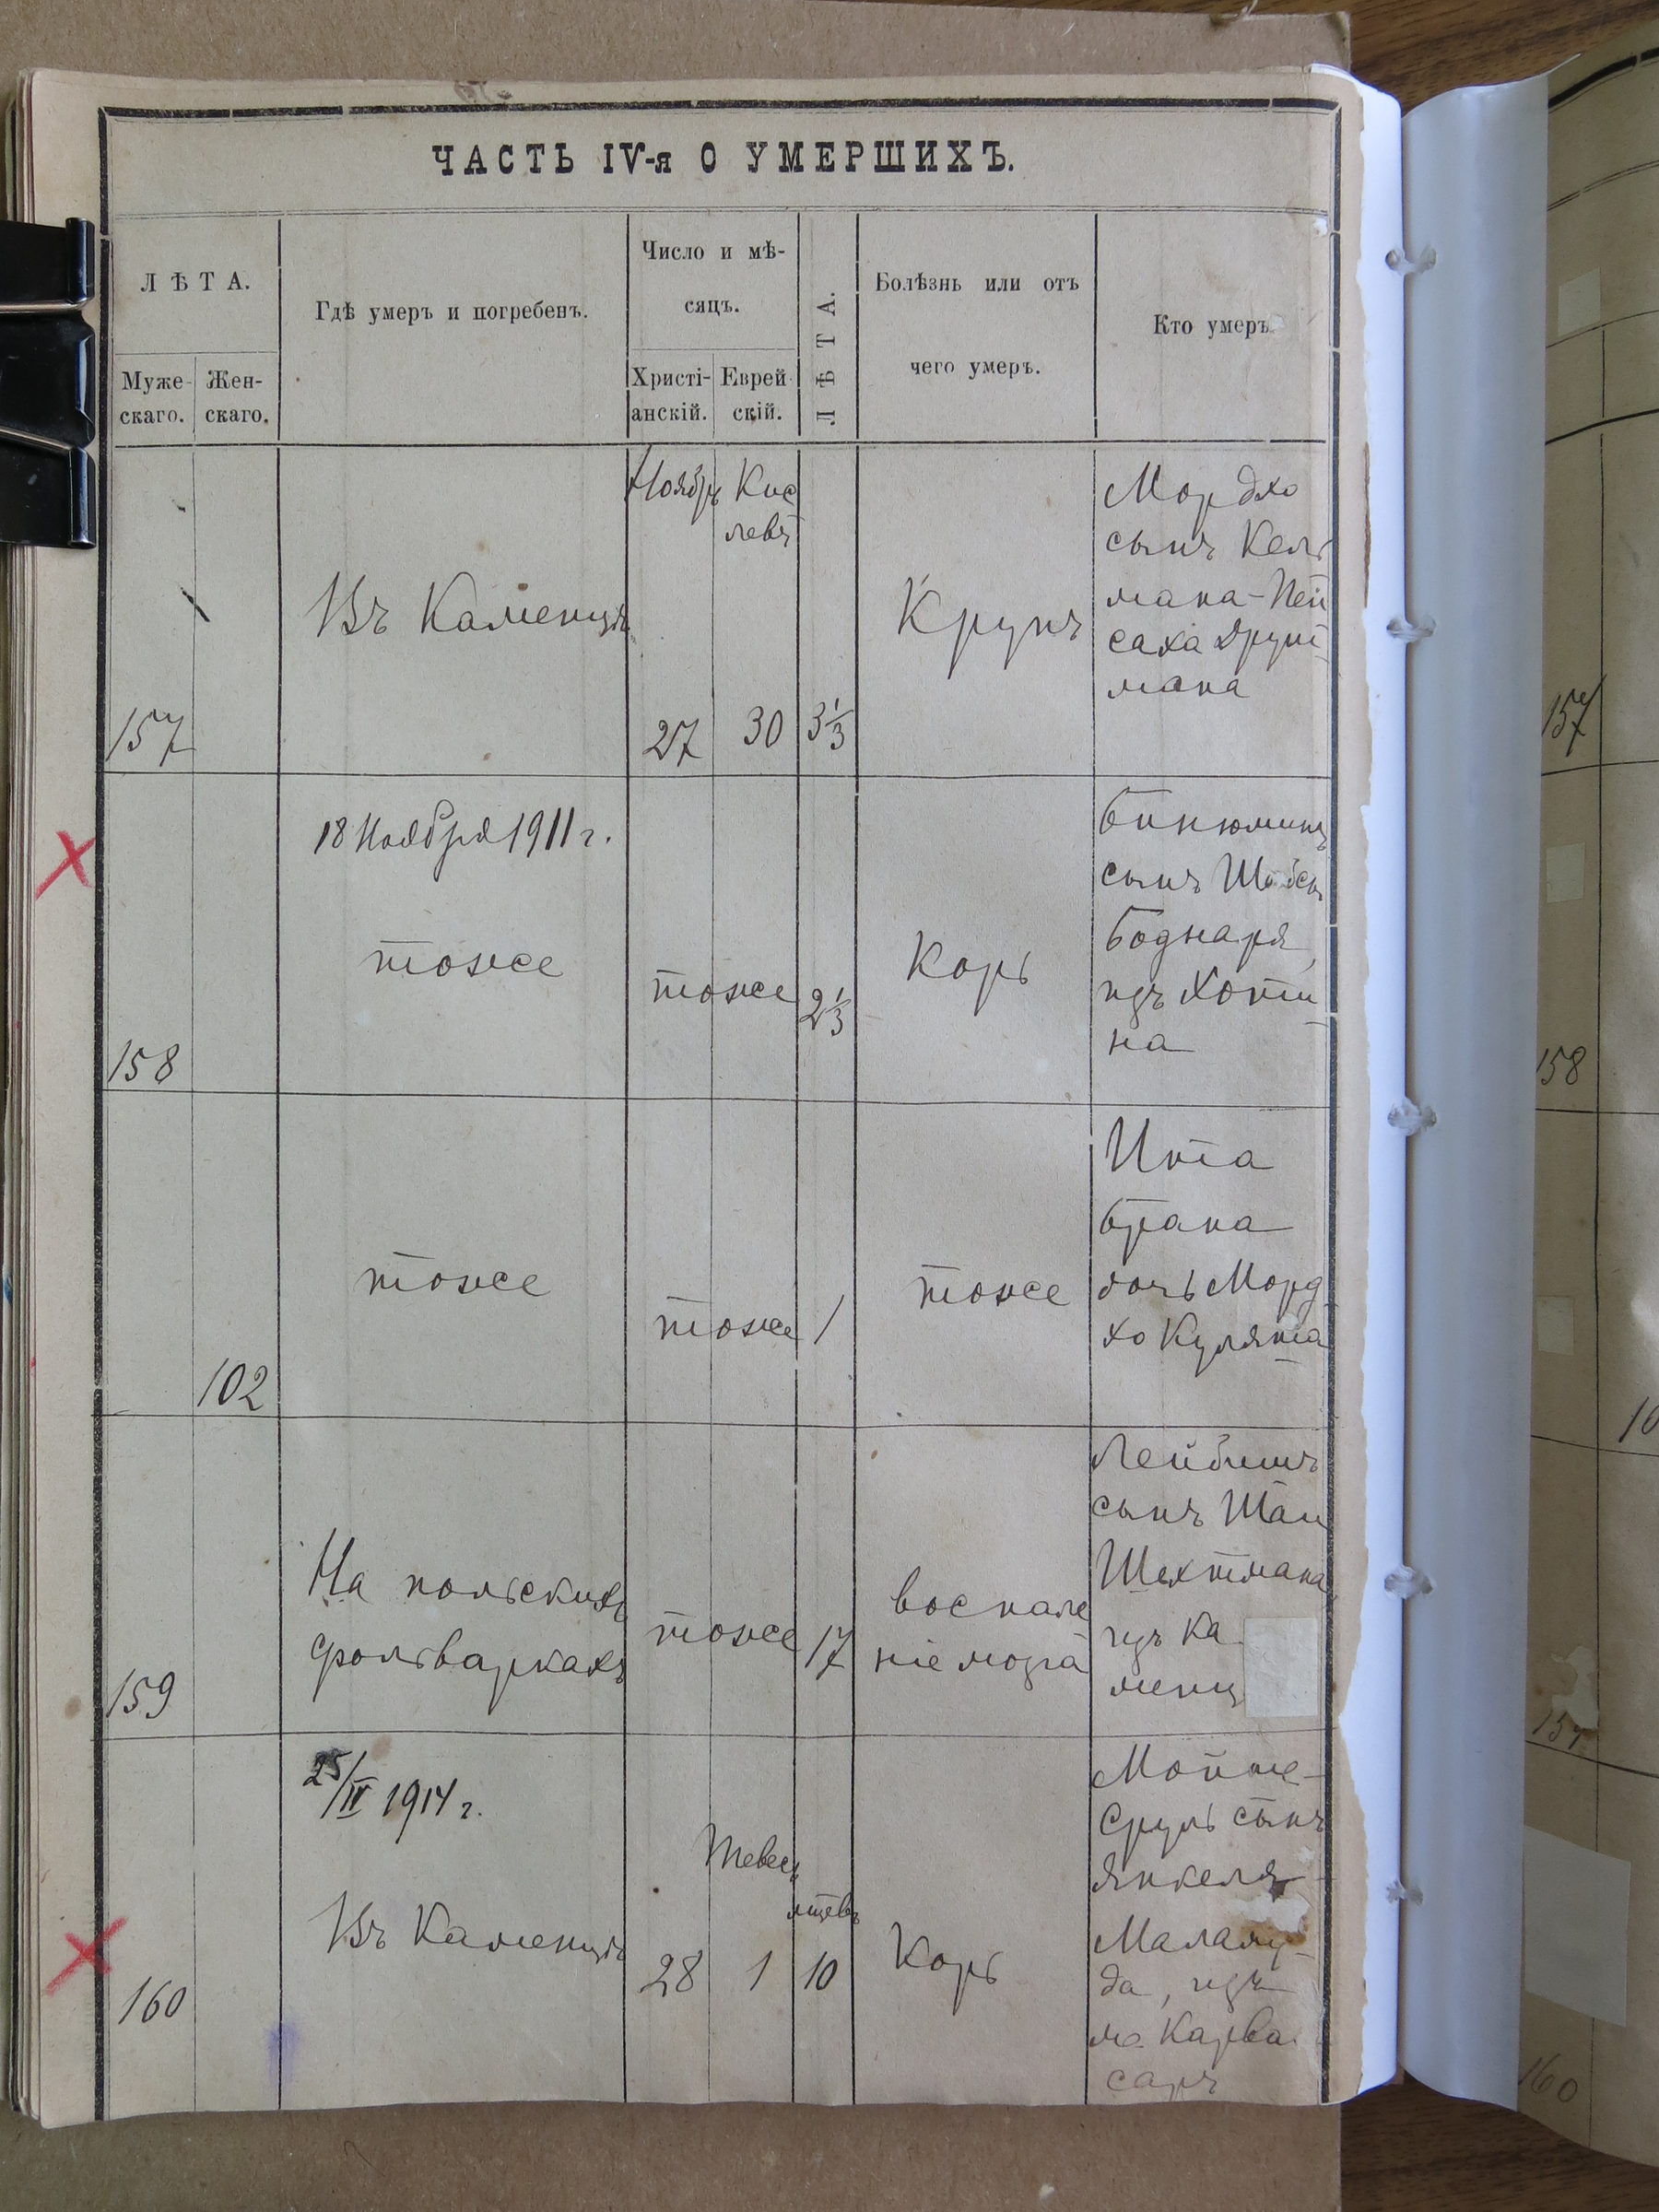 ЧАСТЬ IV-я О УМЕРШИХЪ.
ЛѢТА.
Муже-
скаго.
Жен-
скаго.
Гдѣ умеръ и погребенъ.
Число и мѣ-
сяцъ.
Христі-
анскій.
Еврей
скій.
ЛѢТА.
Болѣзнь или отъ
чего умеръ.
Кто умеръ.
157
Въ Каменцѣ
Ноябрь
27
Кис
левъ
30
3 1/3
Крупъ
Мордхо
сынъ Кель
мана-Пей
саха Друт
мана
158
18 Ноября 1911 г.
тоже
тоже
2 1/3
Корь
Бинюминъ
сынъ
Боднаря,
изъ Хоти
на
102
тоже
тоже
1
тоже
Ита
Брана
дочь Морд
хо Кулята
159
На польскихъ
фольваркахъ
тоже
17
воспале
ніе мозга
Лейбишъ
сынъ Шаи
Шехтмана
изъ Ка
менц
160
25/IV 1914 г.
Въ Каменцѣ
28
Тевесъ
1
мцевъ
10
Корь
Мойше-
Сруль сынъ
Янкеля
Маламу-
да, изъ
м. Карва
саръ
157
158
10
159
160